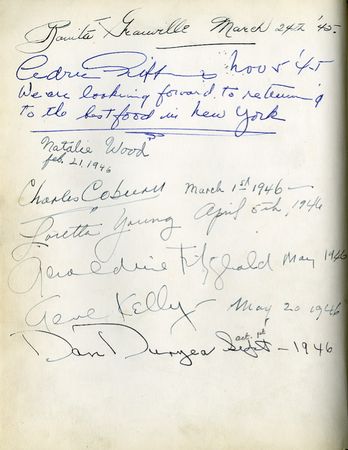 Bonita Granville March 24th '45.
Cedric Nov 5 '45
We are looking forward to returning
to the best food in New York
Natalie Wood
feb. 21, 1946
Charles Coburn March 1st 1946 –
Loretta Young April 5th, 1946
Geraldine Fitzgerald May 1946
Gene Kelly – May 20 1946
Dan Duryea Sept – 1946